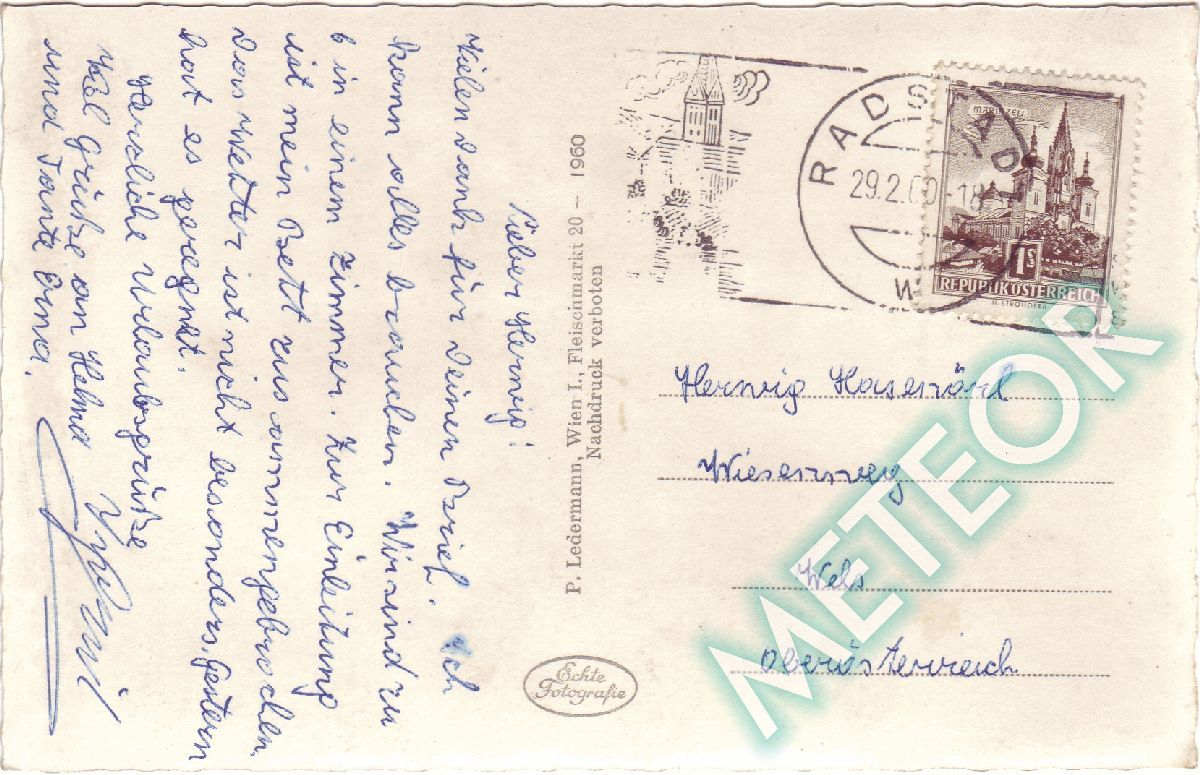 Lieber Herwig!
Vielen Dank für Deinen Brief. Ich
kann alles brauchen. Wir sind zu
6 in einem Zimmer. Zur Einleitung
ist mein Bett zusammengebrochen.
Das Wetter ist nicht besonders. Gestern
hat es geregnet.
Herzliche Urlaubsgrüße
Viel Grüße an Helma
und Tante Erna.
P. Ledermann, Wien I., Fleischmarkt 20 – 1960
Nachdruck verboten
Echte
Fotografie
RADSTADT
29.2.60-18
MARIAZELL
1S
REPUBLIK ÖSTERREICH
Herwig
Wiesenweg
Wels
Oberösterreich
METEOR